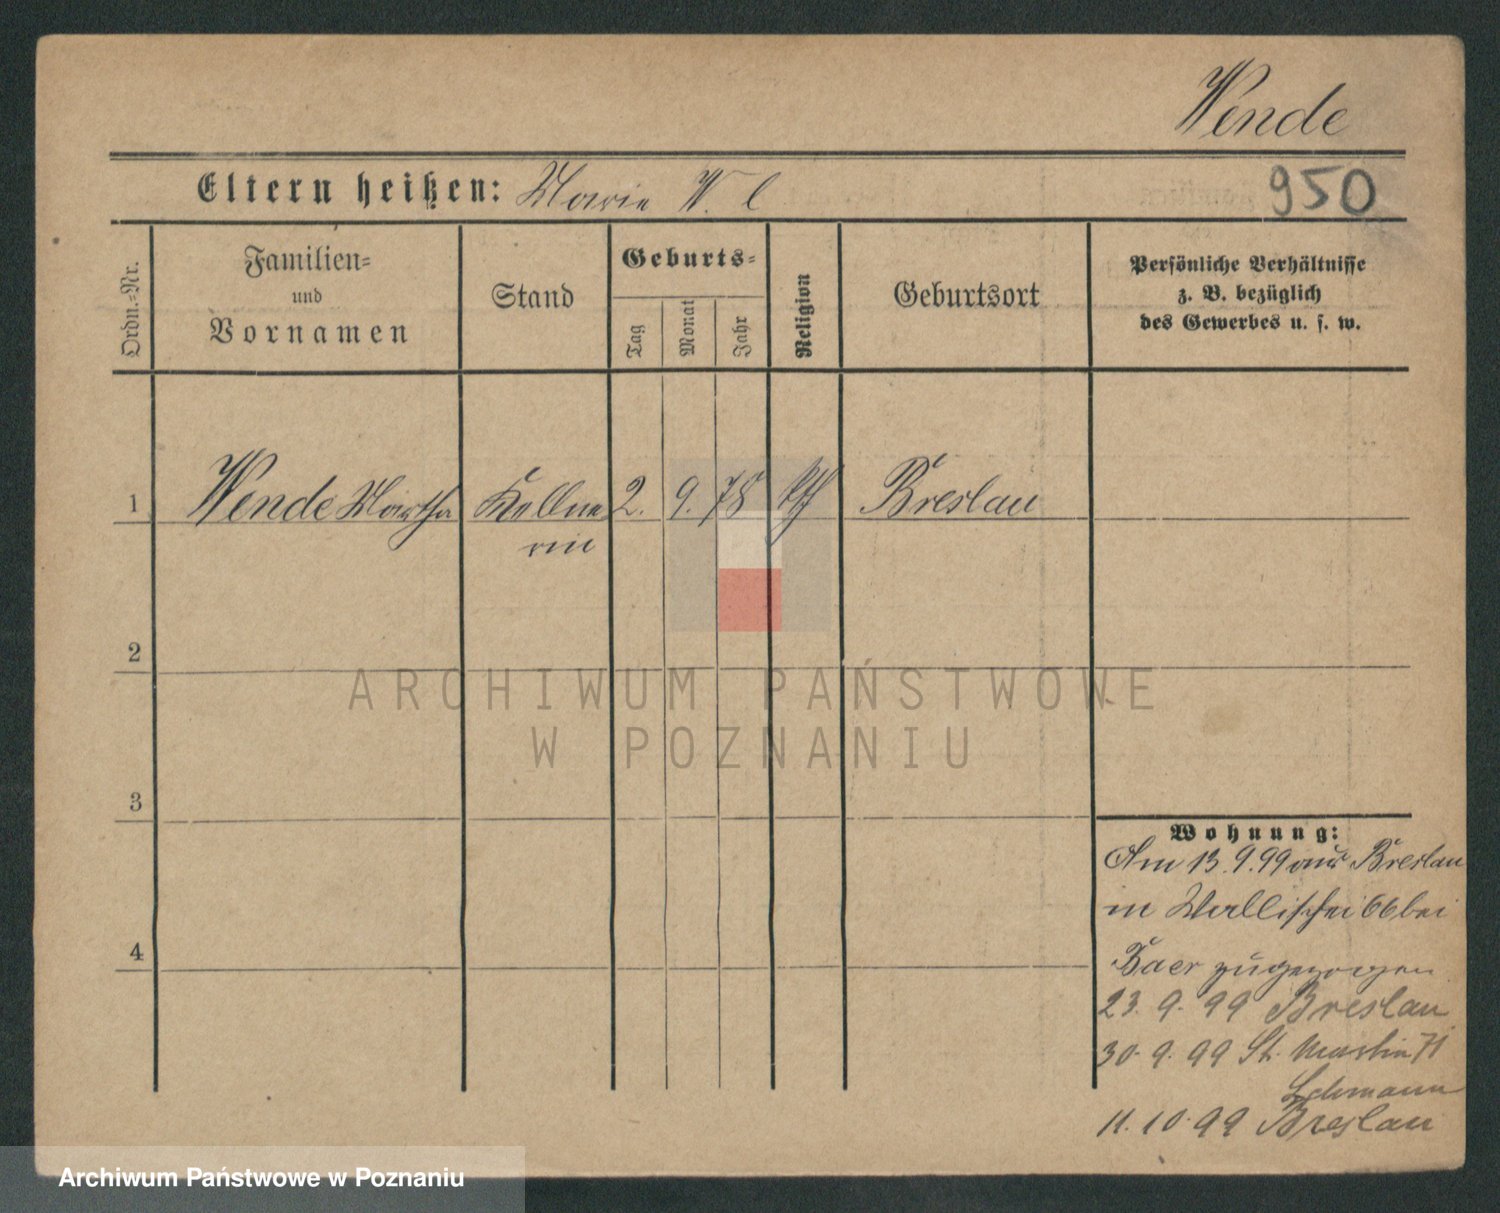 Wende
Eltern heißen: Marie W. l
950
Ordn.-Nr.
Familien-
und
Vornamen
Stand
Geburts-
Tag
Monat
Jahr
Religion
Geburtsort
Persönliche Verhältnisse
z. B. bezüglich
des Gewerbes u. s. w.
1 Wende Martha Kellne 2. 9. 78 kth Breslau
rin
2
ARCHIWUM PAŃSTWOWE
W POZNANIU
3
Wohnung:
Am 13.9.99 aus Breslau
in Wallischei 66 bei
Baer zugezogen
4
23. 9. 99 Breslau
30. 9. 99 St. Martin 71
Lehmann
11. 10. 99 Breslau
Archiwum Państwowe w Poznaniu